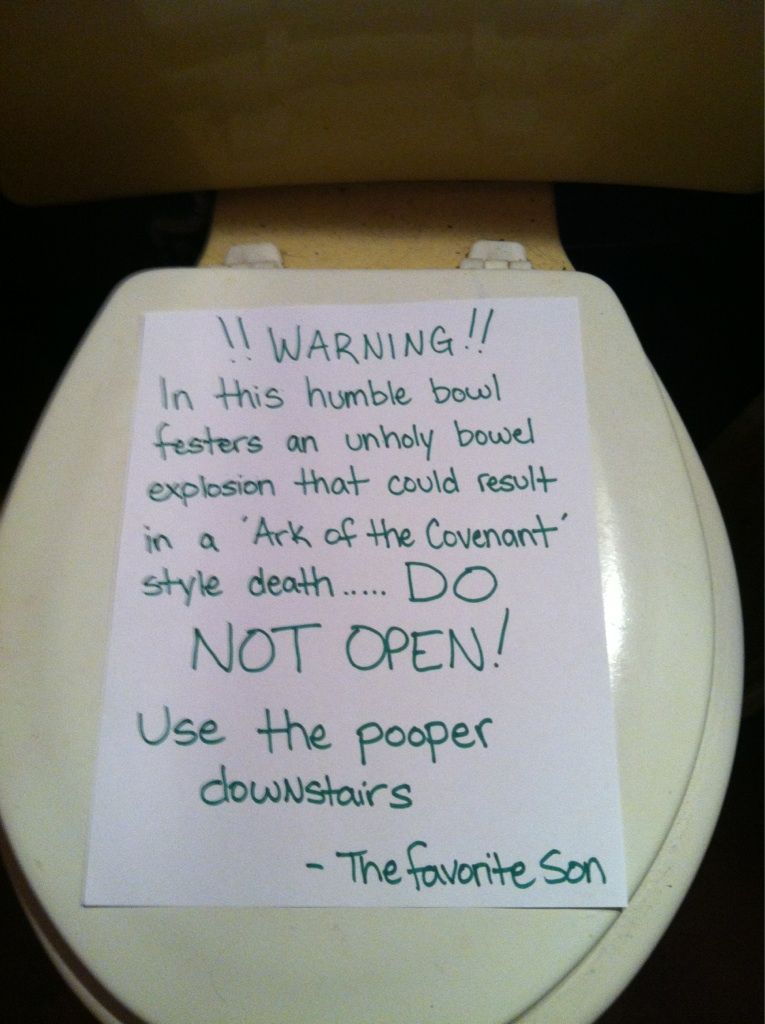 !! WARNING!!
In this humble bowl
festers an unholy bowel
explosion that could result
in a 'Ark of the Covenant'
style death..... DO
NOT OPEN!
Use the pooper
downstairs
- The favorite Son